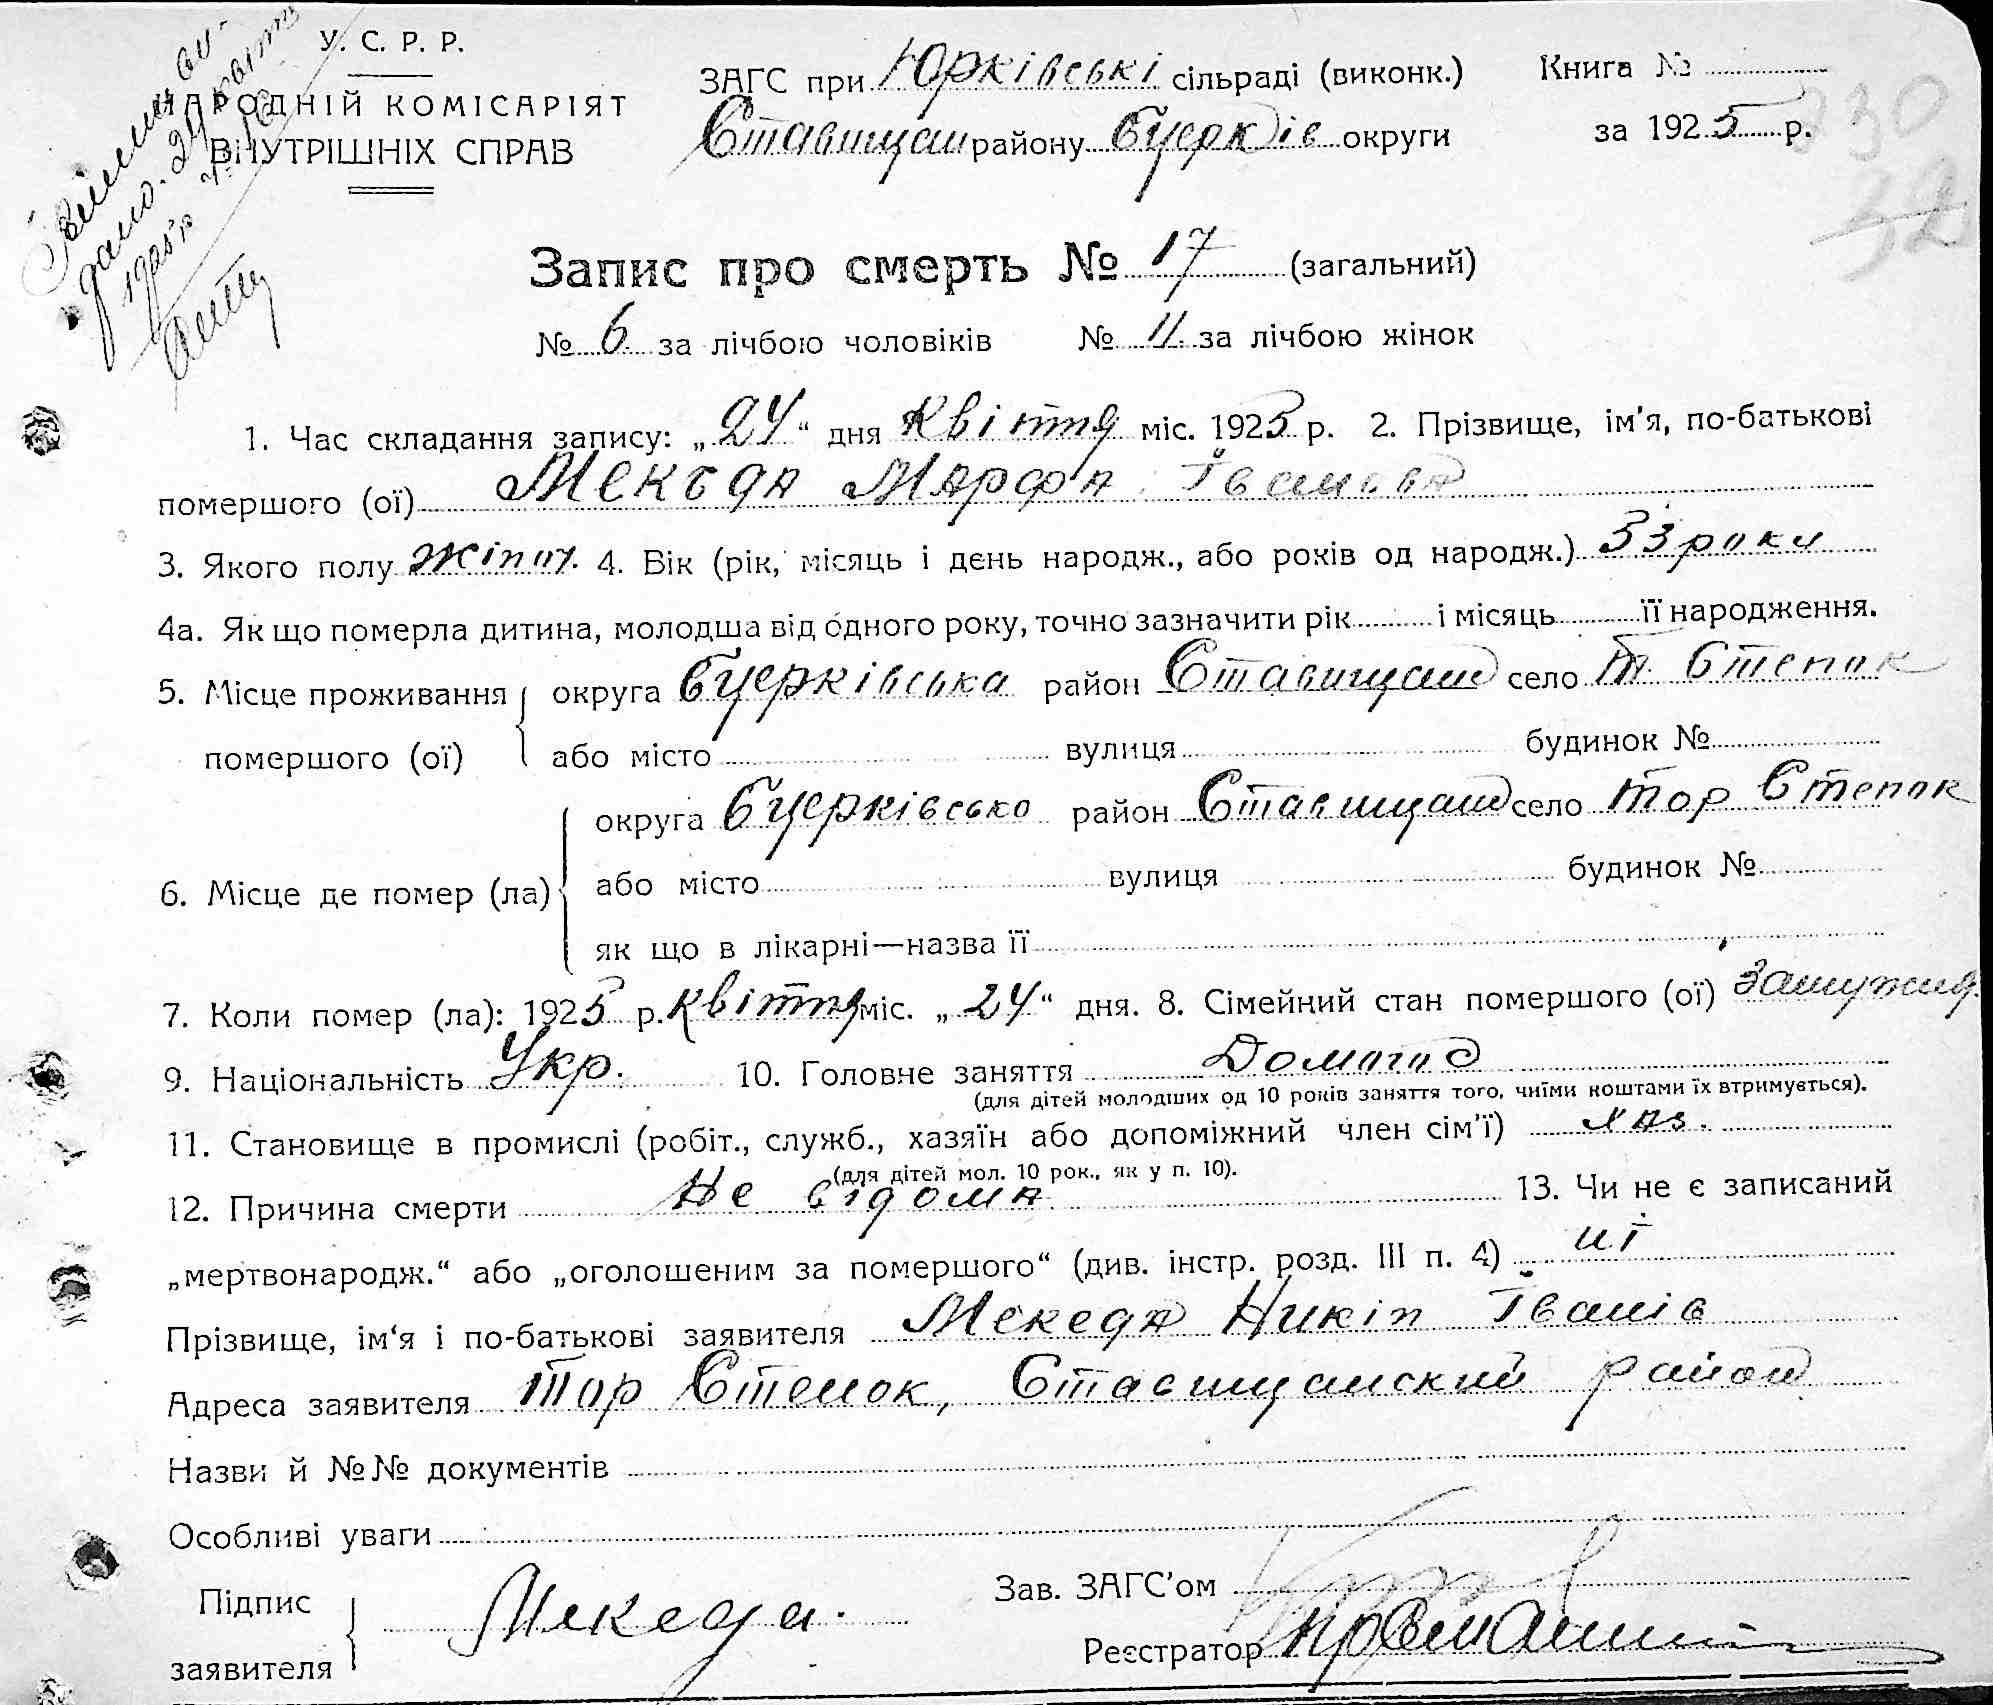 У. С. Р. Р.
НАРОДНІЙ КОМІСАРІЯТ
ВНУТРІШНІХ СПРАВ
ЗАГС при Юрківські сільраді (виконк.) Книга №
Ставищан району Бцерків округи за 1925 р.
Запис про смерть № 17 (загальний)
№ 6 за лічбою чоловіків № 11 за лічбою жінок
1. Час складання запису: „24“ дня Квітня міс. 1925 р. 2. Прізвище, ім'я, по-батькові
помершого (ої) Мекеда Марфа Іванова
3. Якого полу жіноч. 4. Вік (рік, місяць і день народж., або років од народж.) 33 роки
4а. Як що померла дитина, молодша від одного року, точно зазначити рік і місяць її народження.
5. Місце проживання округа Бцерківська район Ставищан село т. Степок
помершого (ої) або місто вулиця будинок №
округа Бцерківсько район Ставищан село тор Степок
6. Місце де помер (ла) або місто вулиця будинок №
як що в лікарні—назва її
7. Коли помер (ла): 1925 р. Квітня міс. „24“ дня. 8. Сімейний стан помершого (ої) Замужня
9. Національність Укр. 10. Головне заняття Домогос
(для дітей молодших од 10 років заняття того, чиїми коштами їх втримується).
11. Становище в промислі (робіт., служб., хазяїн або допоміжний член сім'ї) хаз.
(для дітей мол. 10 рок., як у п. 10).
12. Причина смерти Не відома 13. Чи не є записаний
„мертвонародж.“ або „оголошеним за помершого“ (див. інстр. розд. III п. 4) ні
Прізвище, ім'я і по-батькові заявителя Мекеда Никіп Іванів
Адреса заявителя тор Степок, Ставищанский район
Назви й №№ документів
Особливі уваги
Підпис заявителя Мекеда.
Зав. ЗАГС'ом
Реєстратор